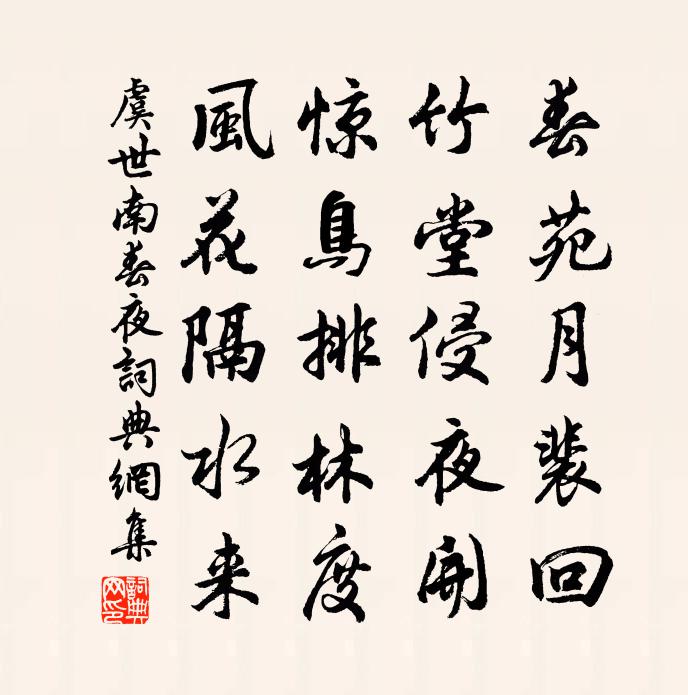 春苑月裴回
竹堂侵夜開
惊鳥排林度
風花隔水来
虞世南春夜詞典網集
詞典网印